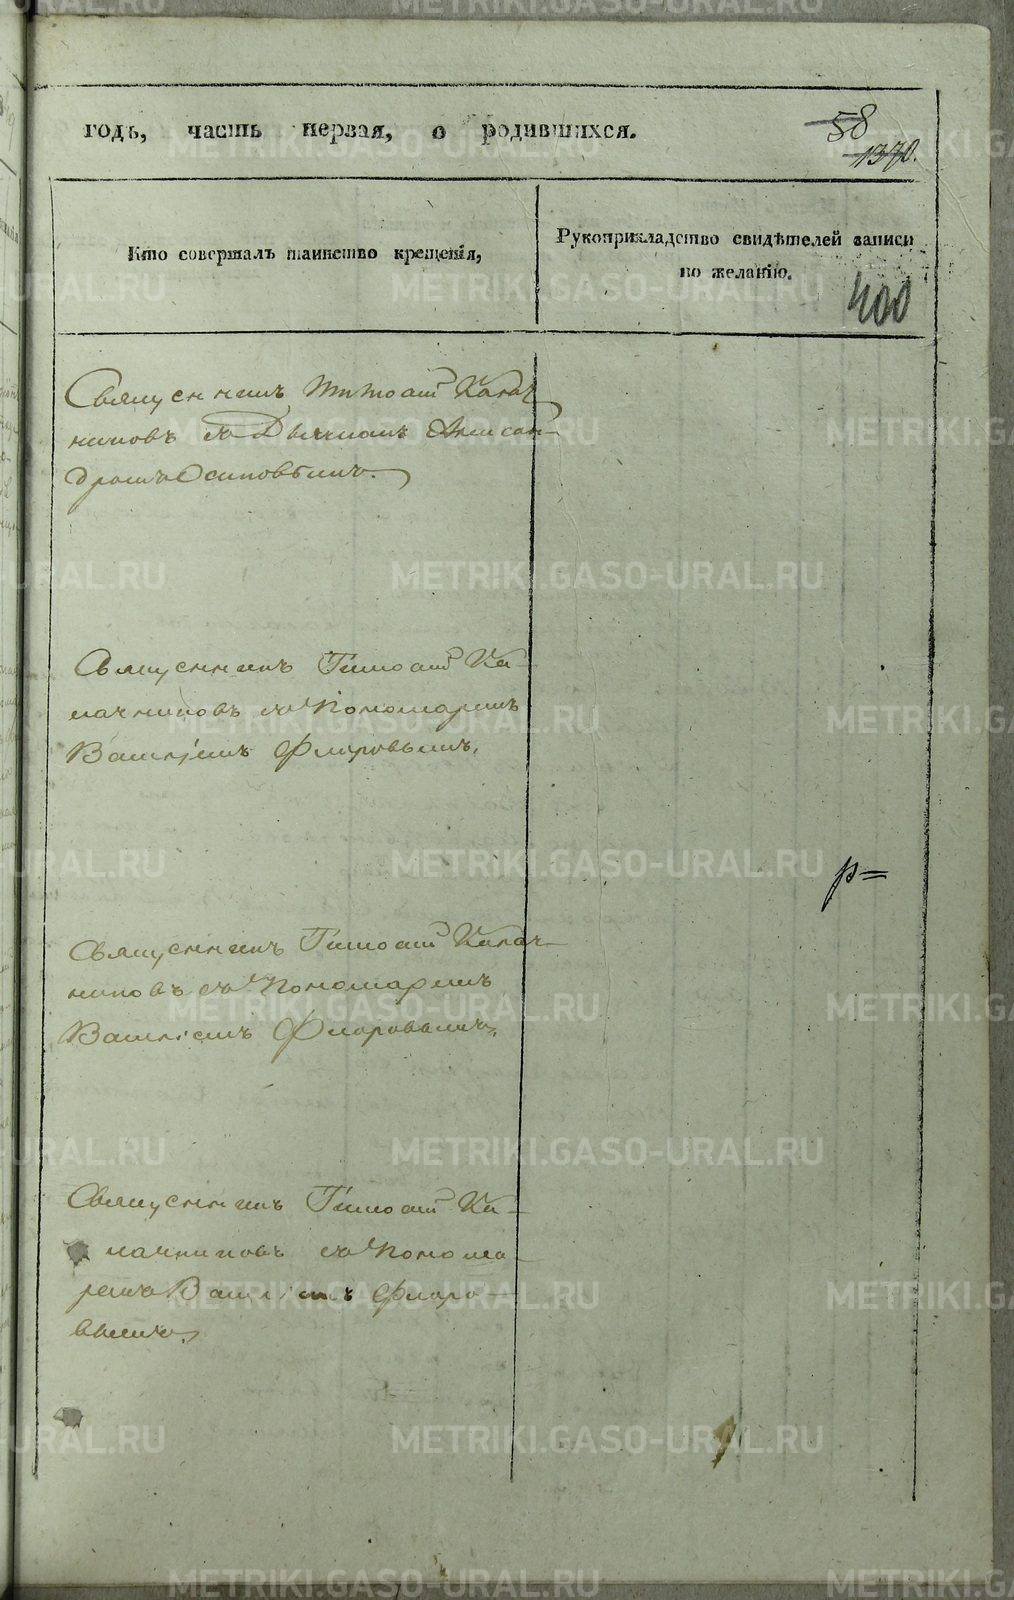 годъ, часть первая, о родившихся.
58
1370.
Кто совершалъ таинство крещенія,
Рукоприкладство свидѣтелей записи
по желанію.
400
Священникъ Тимоѳей Калач
никовъ съ Дьячкомъ Алексан-
дромъ Осиповымъ.
Священникъ Тимоѳей Ка-
лачниковъ съ Пономаремъ
Василіемъ Флоровымъ.
Священникъ Тимоѳей Калач-
никовъ съ Пономаремъ
Василіемъ Флоровымъ.
Священникъ Тимоѳей Ка-
лачниковъ съ Понома-
ремъ Василіемъ Флоро-
вымъ.
METRIKI.GASO-URAL.RU